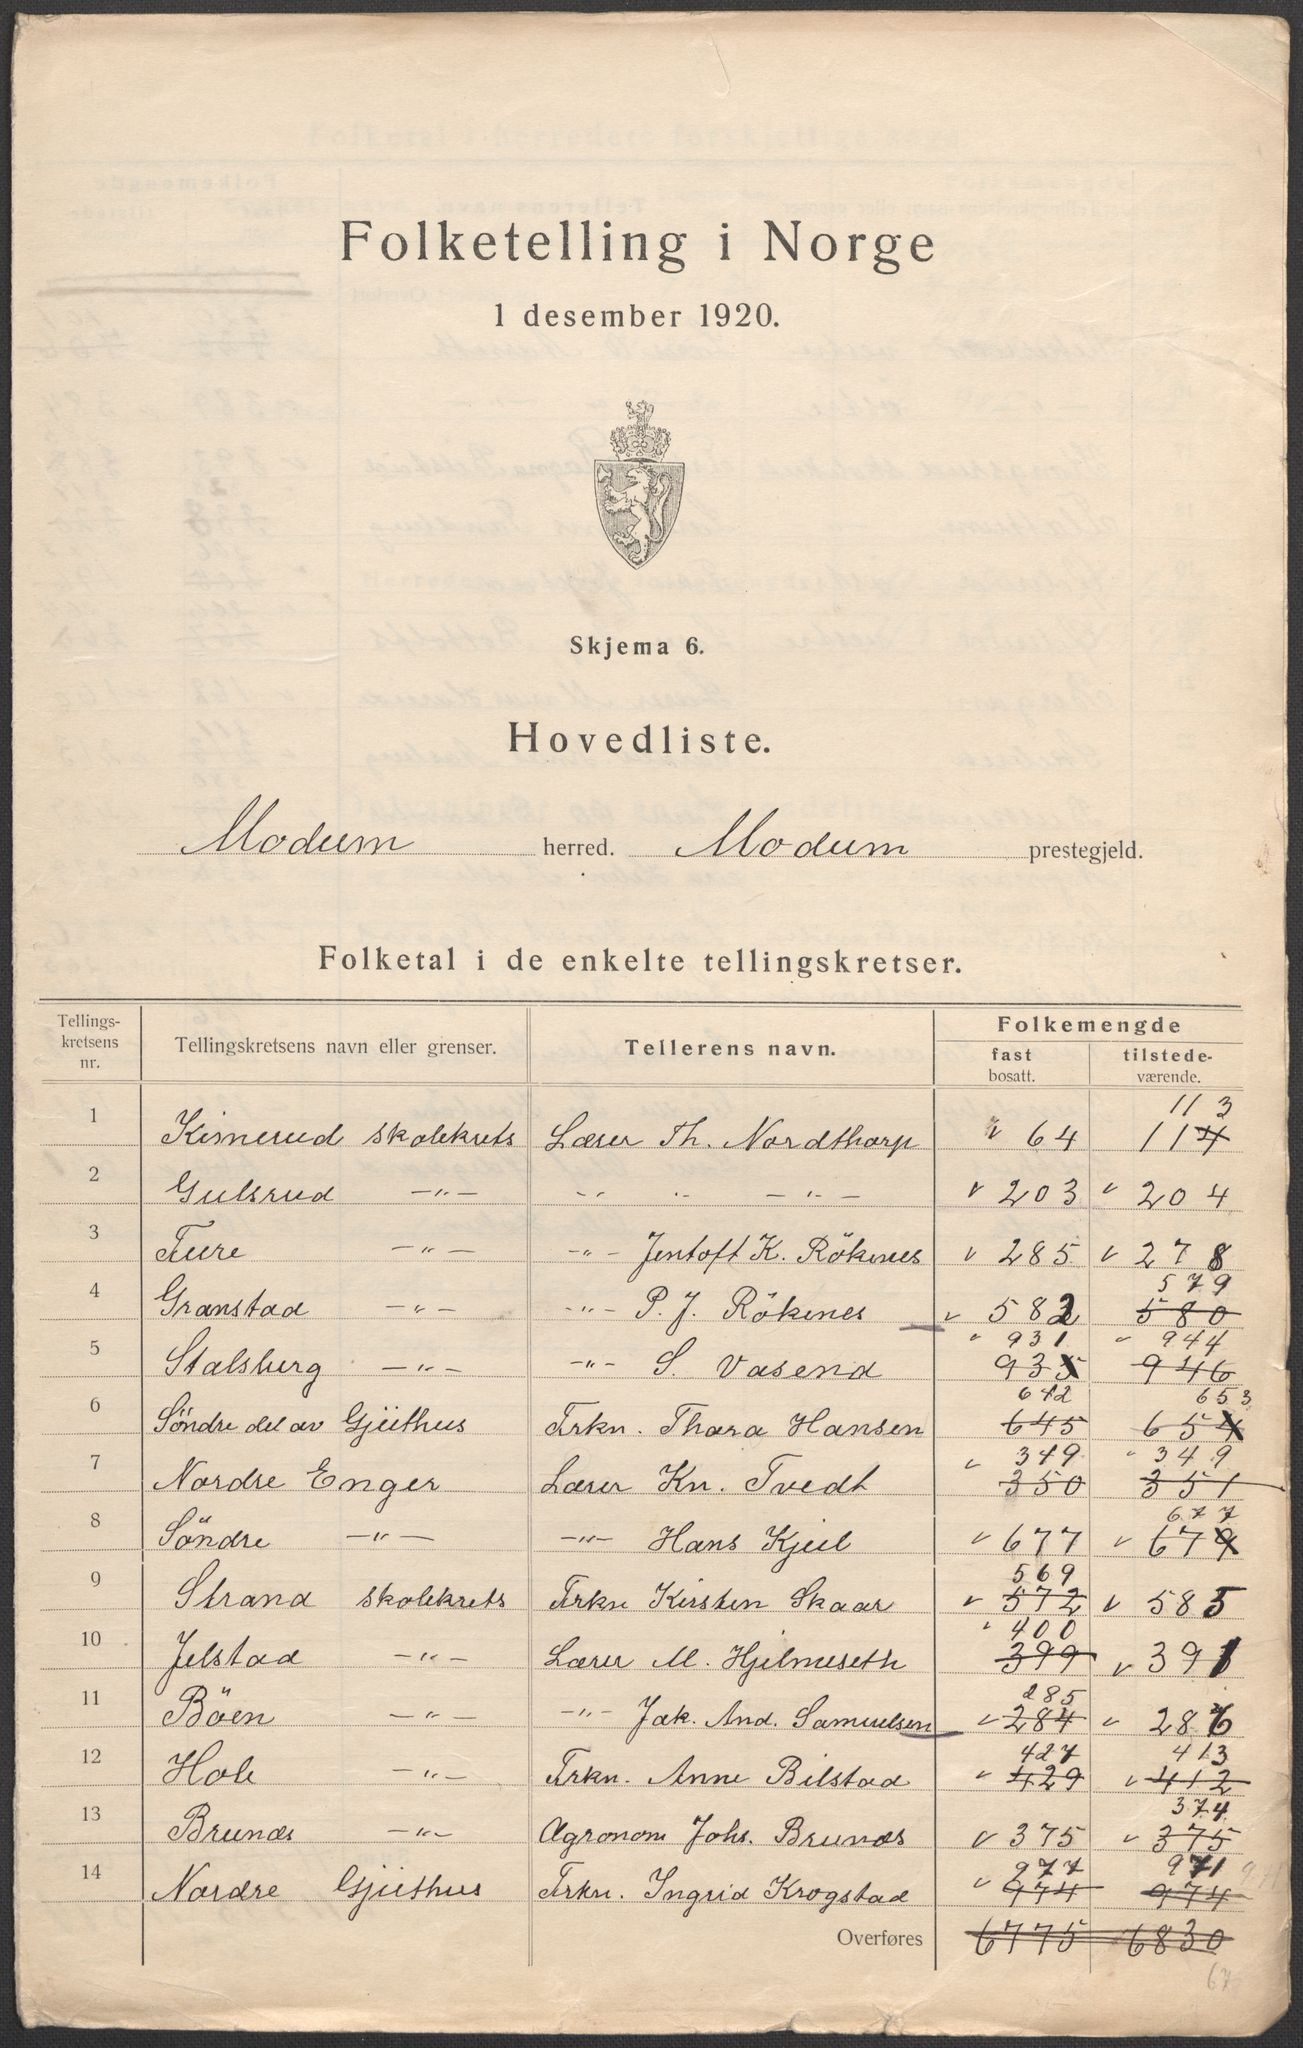 Folketelling i Norge
1 desember 1920.
Skjema 6.
Hovedliste.
Modum herred. Modum prestegjeld.
Folketal i de enkelte tellingskretser.
Tellings-
kretsens
nr.
Tellingskretsens navn eller grenser.
Tellerens navn.
Folkemengde
fast
bosatt.
tilstede-
værende.
113
1 Kimerud skolekrets Lærer Th. Nordthorp 64 114
2 Gulsrud -"- " " -"- 203 204
3 Fure -"- -"- Jentoft K. Rökenes 285 278
579
4 Granstad -"- -"- P. J. Rökenes 582 580
931 944
5 Stalsberg -"- -"- S. Vasend 935 946
642 653
6 Söndre del av Gjethus Frkn. Thora Hansen 645 654
349 349
7 Nordre Enger Lærer Kn. Tvedt 350 351
677
8 Söndre -"- -"- Hans Kjeil 677 679
569
9 Strand skolekrets Frkn Kirsten Skaar 572 585
400
10 Jelstad -"- Lærer M. Hjelmeseth 399 391
285
11 Böen -"- -"- Jak. And. Samuelsen 284 286
427 413
12 Hole -"- Frkn. Anne Bilstad 429 412
374
13 Brunes -"- Agronom Johs. Brunes 375 375
977 971
14 Nordre Gjethus Frkn. Ingrid Krogstad 974 974
Overføres 6775 6830